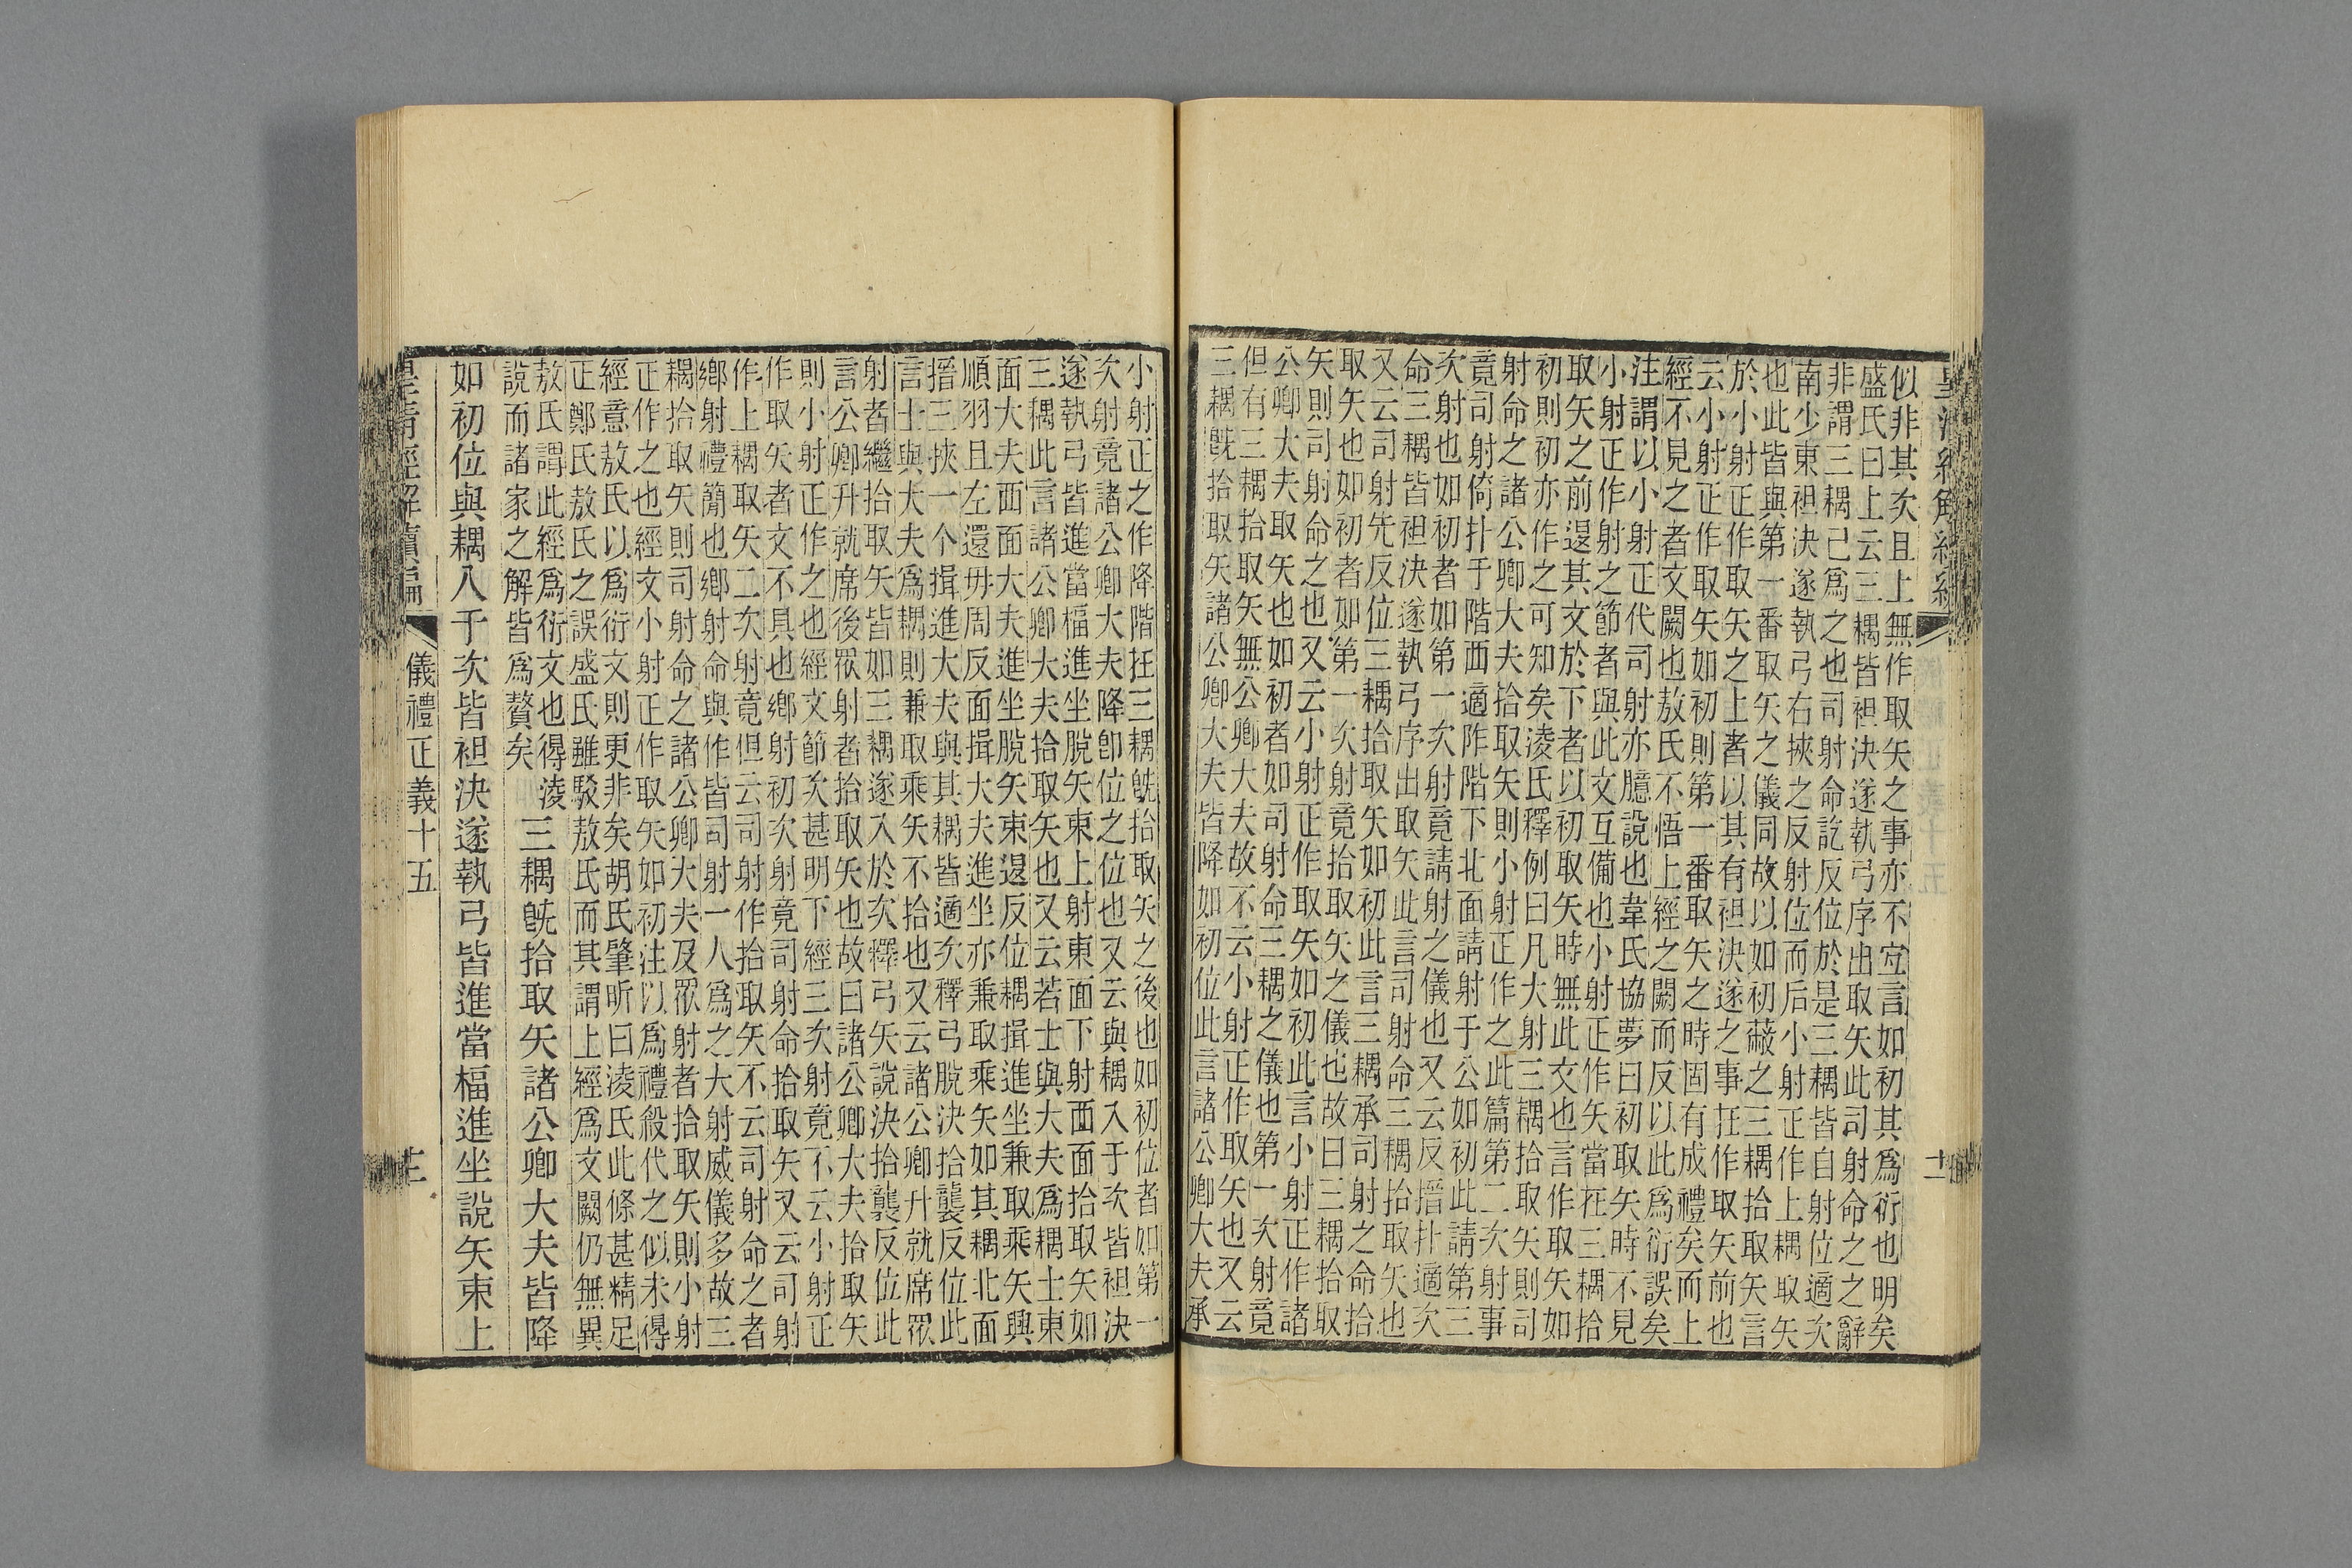 皇清經解續編
十二
似非其次且上無作取矢之事亦不宜言如初其爲衍也明矣
盛氏曰上云三耦皆袒決遂執弓序出取矢此司射命之之辭
非謂三耦已爲之也司射命訖反位於是三耦皆自射位適次
南少東袒決遂執弓右挾之反射位而后小射正作上耦取矢
也此皆與第一番取矢之儀同故以如初蔽之三耦拾取矢言
於小射正作取矢之上者以其有袒決遂之事在作取矢前也
云小射正作取矢如初則第一番取矢之時固有成禮矣而上
經不見之者文闕也敖氏不悟上經之闕而反以此爲衍誤矣
注謂以小射正代司射亦臆說也韋氏協夢曰初取矢時不見
小射正作射之節者與此文互備也小射正作矢當在三耦拾
取矢之前退其文於下者以初取矢時無此文也言作取矢如
初則初亦作之可知矣淩氏釋例曰凡大射三耦拾取矢則司
射命之諸公卿大夫拾取矢則小射正作之此篇第二次射事
竟司射倚扑于階西適阼階下北面請射于公如初此請第三
次射也如初者如第一次射竟請射之儀也又云反搢扑適次
命三耦皆袒決遂執弓序出取矢此言司射命三耦拾取矢也
又云司射先反位三耦拾取矢如初此言三耦承司射之命拾
取矢也如初者如第一次射竟拾取矢之儀也故曰三耦拾取
矢則司射命之也又云小射正作取矢如初此言小射正作諸
公卿大夫取矢也如初者如司射命三耦之儀也第一次射竟
但有三耦拾取矢無公卿大夫故不云小射正作取矢也又云
三耦旣拾取矢諸公卿大夫皆降如初位此言諸公卿大夫承
小射正之作降階在三耦旣拾取矢之後也如初位者如第一
次射竟諸公卿大夫降卽位之位也又云與耦入于次皆袒決
遂執弓皆進當楅進坐脫矢東上射東面下射西面拾取矢如
三耦此言諸公卿大夫拾取矢也又云若士與大夫爲耦士東
面大夫西面大夫進坐脫矢東退反位耦揖進坐兼取乘矢興
順羽且左還毋周反面揖大夫進坐亦兼取乘矢如其耦北面
搢三挾一个揖進大夫與其耦皆適次釋弓脫決拾襲反位此
言士與大夫爲耦則兼取乘矢不拾也又云諸公卿升就席眾
射者繼拾取矢皆如三耦遂入於次釋弓矢說決拾襲反位此
言公卿升就席後眾射者拾取矢也故曰諸公卿大夫拾取矢
則小射正作之也經文節次甚明下經三次射竟不云小射正
作取矢者文不具也鄉射初次射竟司射命拾取矢又云司射
作上耦取矢二次射竟但云司射作拾取矢不云司射命之者
鄉射禮簡也鄉射命與作皆司射一人爲之大射威儀多故三
耦拾取矢則司射命之諸公卿大夫及眾射者拾取矢則小射
正作之也經文小射正作取矢如初注以爲禮殺代之似未得
經意敖氏以爲衍文則更非矣胡氏肇昕曰淩氏此條甚精足
正鄭氏敖氏之誤盛氏雖駁敖氏而其謂上經爲文闕仍無異
敖氏謂此經爲衍文也得淩
說而諸家之解皆爲贅矣
三耦旣拾取矢諸公卿大夫皆降
如初位與耦入于次皆袒決遂執弓皆進當楅進坐說矢東上
皇清經解續編
儀禮正義十五
十三